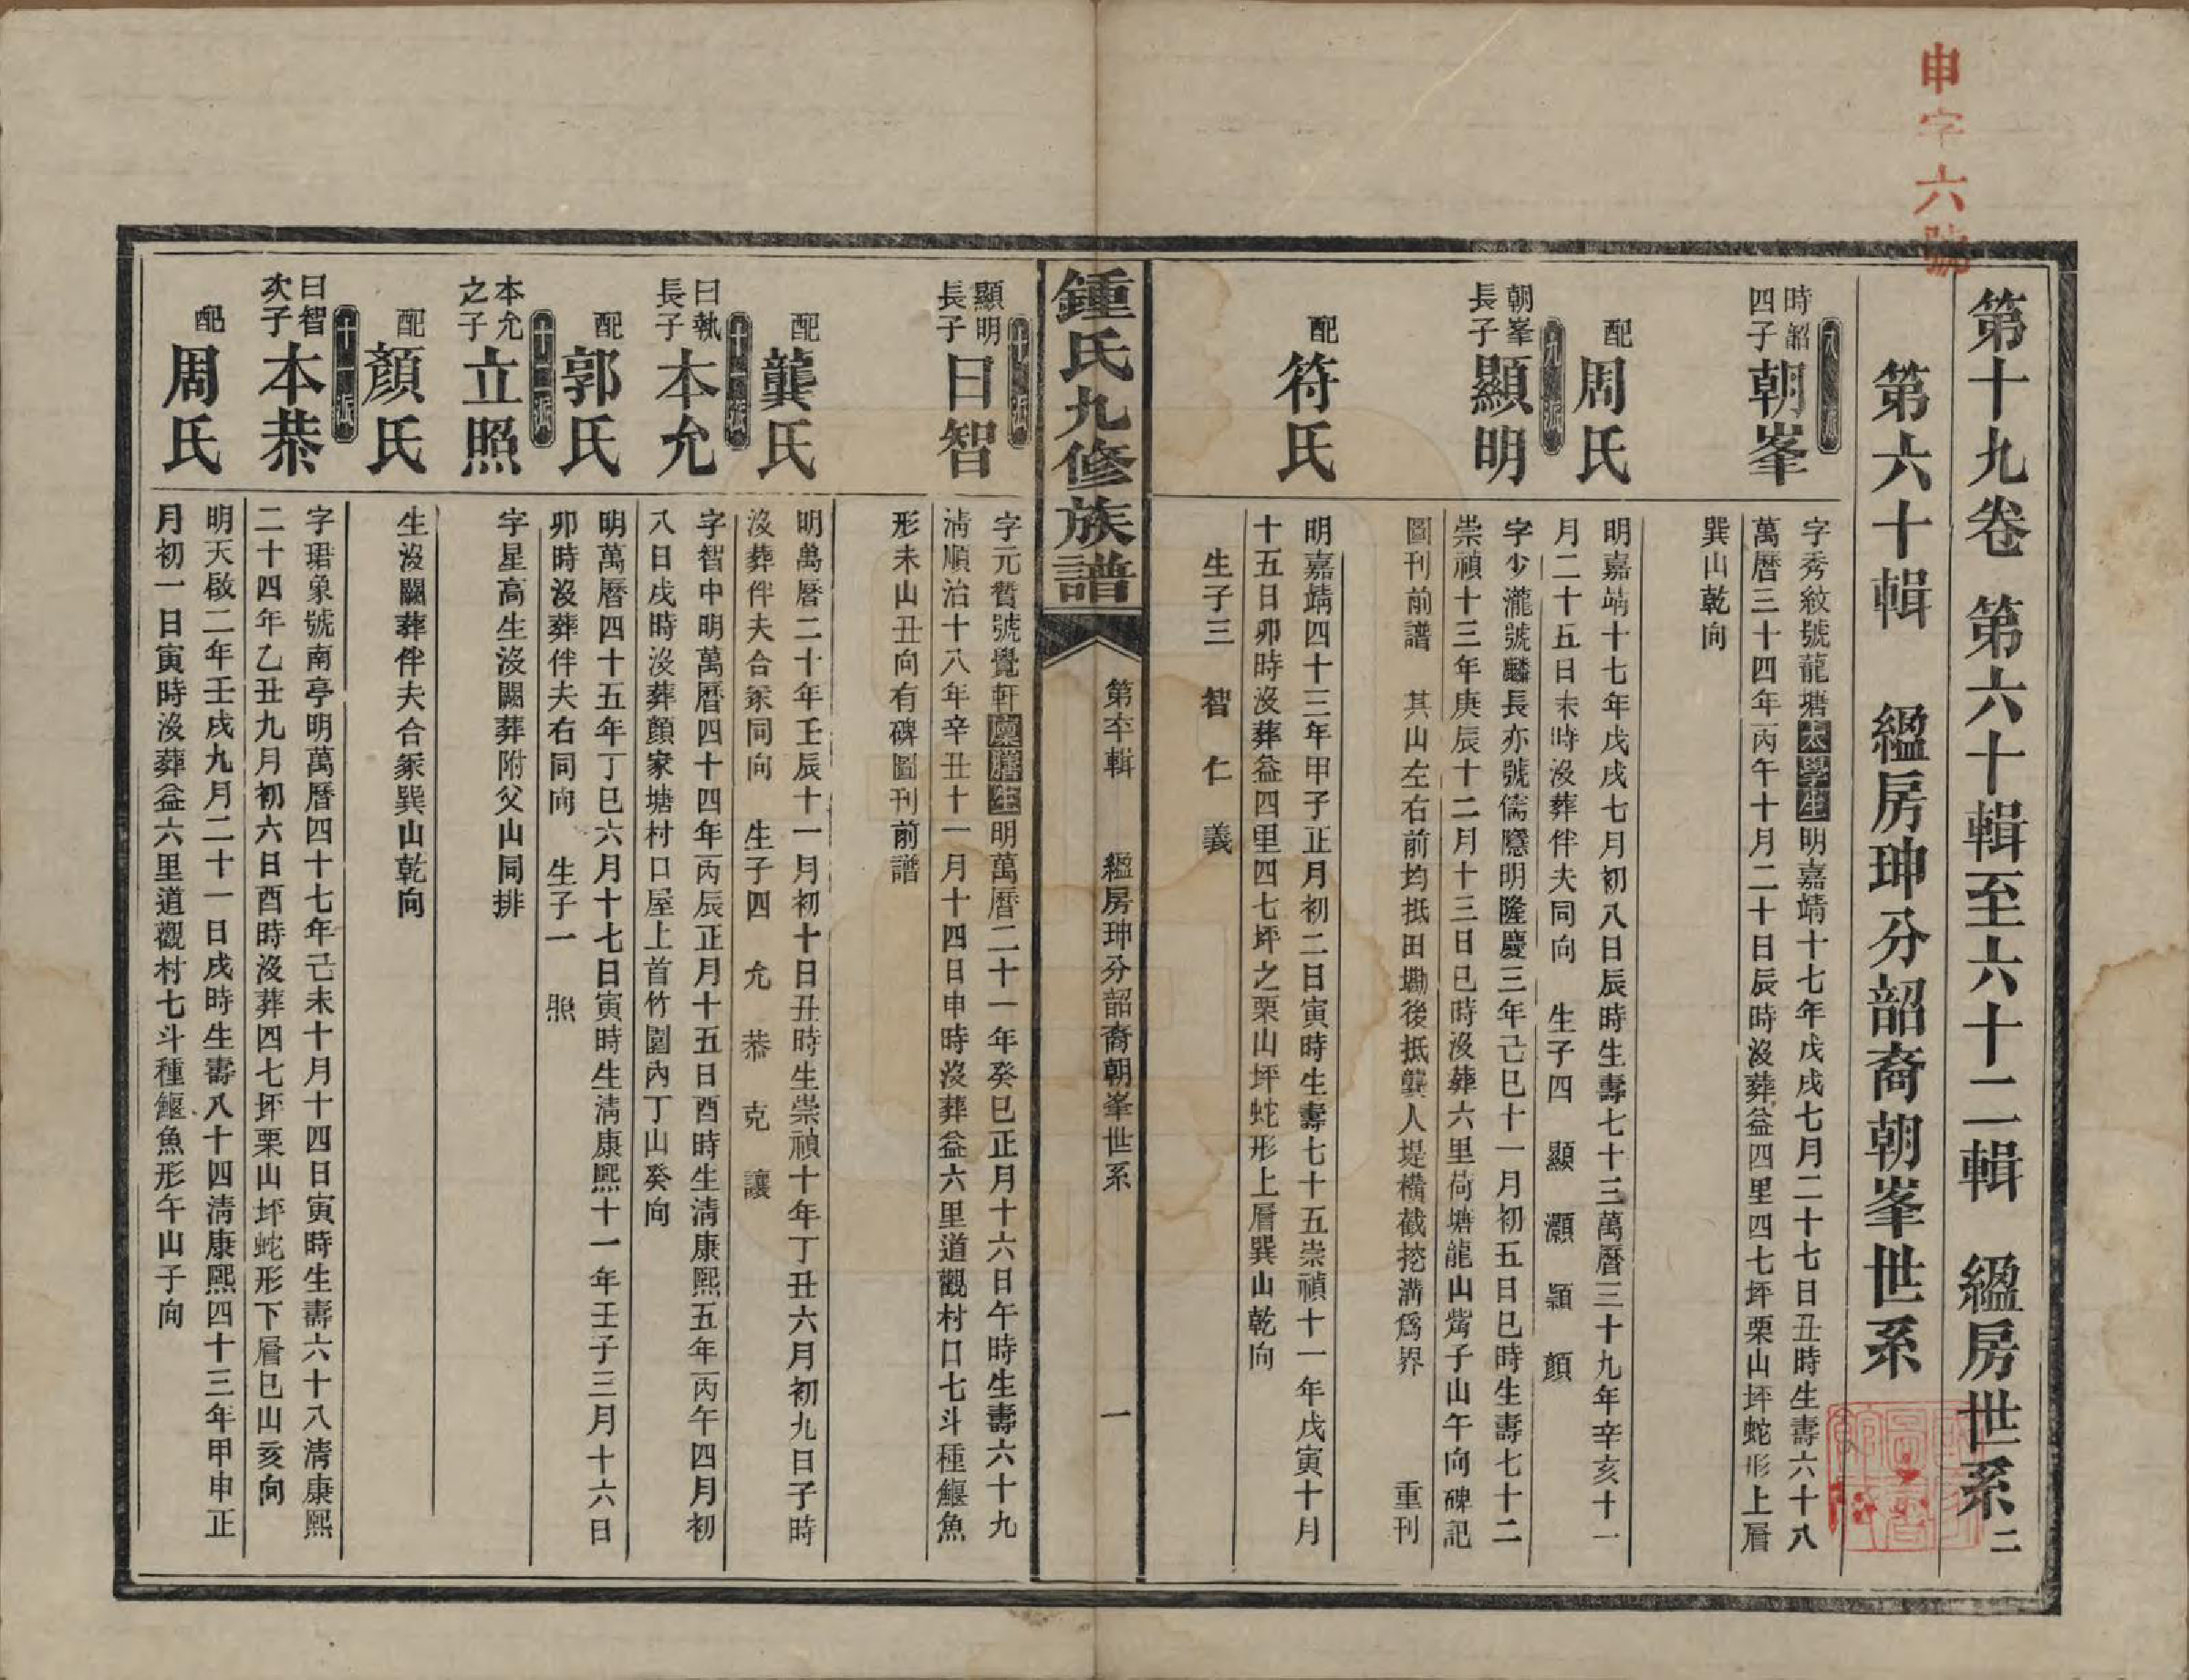 申字六號
第十九卷　第六十輯至六十二輯　縕房世系二
第六十輯　縕房珅分韶裔朝峯世系
八派
時韶四子朝峯
字秀紋號龍塘太學生明嘉靖十七年戊戌七月二十七日丑時生壽六十八
萬曆三十四年丙午十月二十日辰時沒葬益四里四七坪栗山坪蛇形上層
巽山乾向
配周氏
明嘉靖十七年戊戌七月初八日辰時生壽七十三萬曆三十九年辛亥十一
月二十五日未時沒葬伴夫同向　生子四　顯　灝　顥　顏
九派
朝峯長子顯明
字少瀧號麟長亦號儒隱明隆慶三年己巳十一月初五日巳時生壽七十二
崇禎十三年庚辰十二月十三日巳時沒葬六里荷塘龍山嘴子山午向碑記
圖刊前譜　其山左右前均抵田墈後抵龔人堤橫截挖溝爲界　重刊
配符氏
明嘉靖四十三年甲子正月初二日寅時生壽七十五崇禎十一年戊寅十月
十五日卯時沒葬益四里四七坪之栗山坪蛇形上層巽山乾向
生子三　智　仁　義
鍾氏九修族譜
第六十輯　縕房珅分韶裔朝峯世系　一
十派
顯明長子日智
字元贊號覺軒廩膳生明萬曆二十一年癸巳正月十六日午時生壽六十九
清順治十八年辛丑十一月十四日申時沒葬益六里道觀村口七斗種鰋魚
形未山丑向有碑圖刊前譜
配龔氏
明萬曆二十年壬辰十一月初十日丑時生崇禎十年丁丑六月初九日子時
沒葬伴夫合冢同向　生子四　允　恭　克　讓
十一派
日執長子本允
字智中明萬曆四十四年丙辰正月十五日酉時生清康熙五年丙午四月初
八日戌時沒葬顏家塘村口屋上首竹園內丁山癸向
配郭氏
明萬曆四十五年丁巳六月十七日寅時生清康熙十一年壬子三月十六日
卯時沒葬伴夫右同向　生子一　照
十二派
本允之子立照
字星高生沒闕葬附父山同排
配顏氏
生沒闕葬伴夫合冢巽山乾向
十一派
日智次子本恭
字珺象號南亭明萬曆四十七年己未十月十四日寅時生壽六十八清康熙
二十四年乙丑九月初六日酉時沒葬四七坪栗山坪蛇形下層巳山亥向
配周氏
明天啟二年壬戌九月二十一日戌時生壽八十四清康熙四十三年甲申正
月初一日寅時沒葬益六里道觀村七斗種鰋魚形午山子向